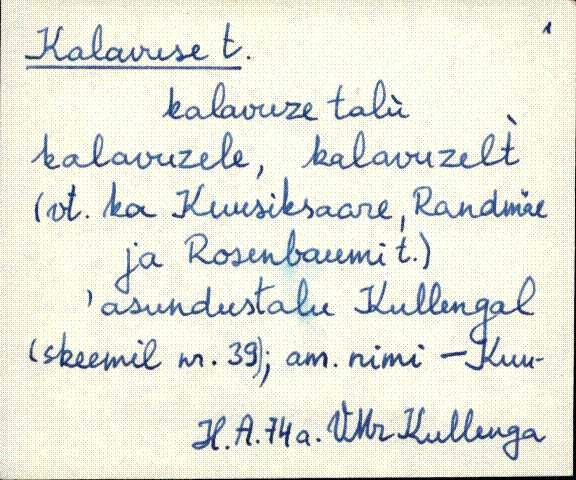 1
Kalavuse t.
kalavuze talù
kalavuzele, kalavuzelt̀
(vt. ka Kuusiksaare, Randmäe
ja Rosenbaumi t.)
'asundustalu Kullengal
(skeemil nr. 39); am. nimi – Kuu-
H.A. 74 a. VMr Kullenga